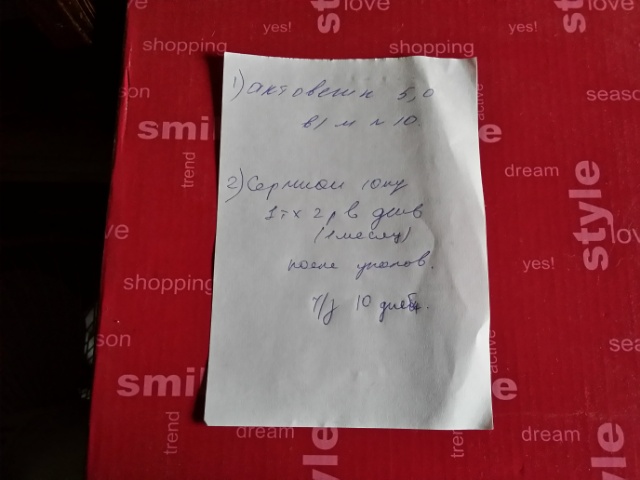 style
love
shopping
dream
shopping
yes!
season
smil
trend
active
e
dream
style
love
yes!
shopping
shopping
son
season
smil
style
trend
dream
dream
style
1) Актовегин 5,0
в/м N 10.
2) Сермион 10мг
1т х 2 р в день
(1 месяц)
после уколов.
ч/з 10 дней.